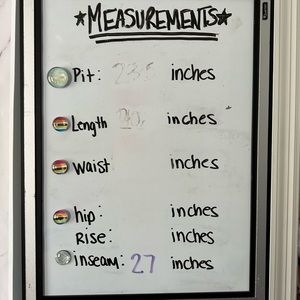 ★MEASUREMENTS★
Pit: 23.5 inches
Length inches
Waist inches
hip: inches
RISE: inches
inseam: 27 inches